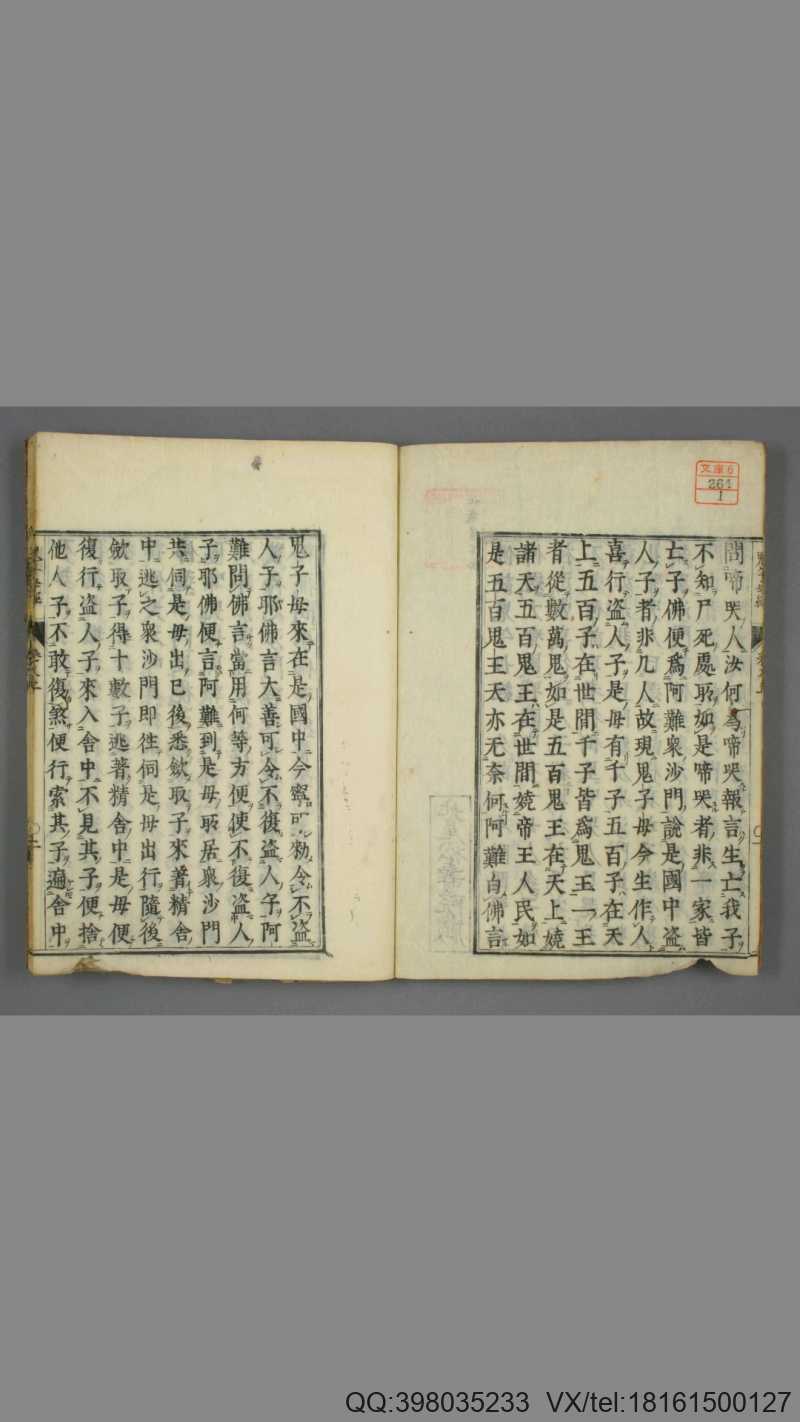 文庫6
264
1
問啼哭人汝何爲啼哭報言生亡我子
不知尸死處所如是啼哭者非一家皆
亡子佛便爲阿難衆沙門說是國中盗
人子者非凡人故現鬼子母今生作人
喜行盗人子是母有千子五百子在天
上五百子在世間千子皆爲鬼王一王
者從數萬鬼如是五百鬼王在天上嬈
諸天五百鬼王在世間嬈帝王人民如
是五百鬼王天亦无奈何阿難白佛言
鬼子母來在是國中今寧可勑令不盗
人子耶佛言大善可令不復盗人子阿
難問佛言當用何等方便使不復盗人
子耶佛便言阿難到是母所居衆沙門
共伺是母出已後悉歛取子來著精舍
中逃之衆沙門即徃伺是母出行隨後
歛取子得十數子逃著精舍中是母便
復行盗人子來入舍中不見其子便捨
他人子不敢復煞便行索其子遍舍中
QQ:398035233 VX/tel:18161500127